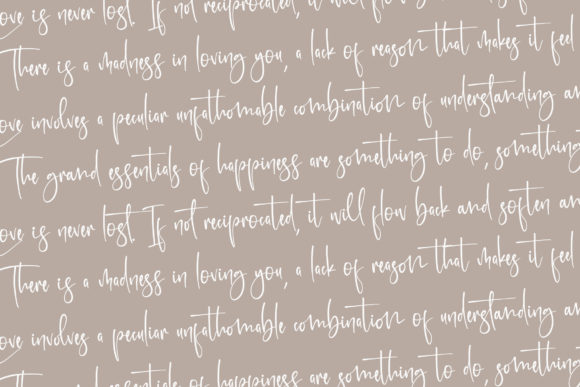 ove is never lost. If not reciprocated, it will flow
There is a madness in loving you, a lack of reason that makes it feel
ove involves a peculiar unfathomable combination of understanding an
The grand essentials of happiness are something to do, something
ove is never lost. If not reciprocated, it will flow back and soften an
There is a madness in loving you, a lack of reason that makes it feel
ove involves a peculiar unfathomable combination of understanding an
The grand essentials of happiness are something to do something